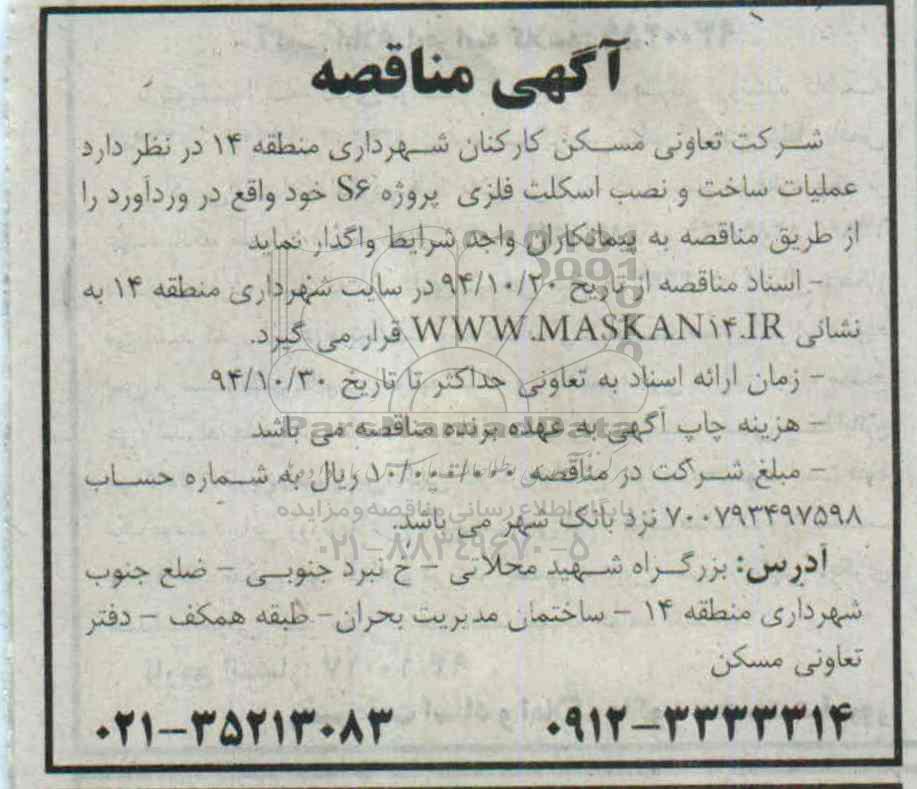 آگهی مناقصه
شرکت تعاونی مسکن کارکنان شهرداری منطقه ۱۴ در نظر دارد
عملیات ساخت و نصب اسکلت فلزی پروژه S۶ خود واقع در وردآورد را
از طریق مناقصه به پیمانکاران واجد شرایط واگذار نماید
- اسناد مناقصه از تاریخ ۹۴/۱۰/۲۰ در سایت شهرداری منطقه ۱۴ به
نشانی WWW.MASKAN۱۴.IR قرار می گیرد.
- زمان ارائه اسناد به تعاونی حداکثر تا تاریخ ۹۴/۱۰/۳۰
- هزینه چاپ آگهی به عهده برنده مناقصه می باشد
- مبلغ شرکت در مناقصه ۱۰/۰۰۰/۰۰۰ ریال به شماره حساب
۷۰۰۷۹۳۴۹۷۵۹۸ نزد بانک شهر می باشد.
آدرس: بزرگراه شهید محلاتی - خ نبرد جنوبی - ضلع جنوب
شهرداری منطقه ۱۴ - ساختمان مدیریت بحران- طبقه همکف - دفتر
تعاونی مسکن
۰۹۱۲-۳۳۳۳۳۱۴ ۰۲۱-۳۵۲۱۳۰۸۳
ParsNamadData
پایگاه اطلاع رسانی مناقصه و مزایده
۰۲۱-۸۸۳۴۹۶۷۰-۵